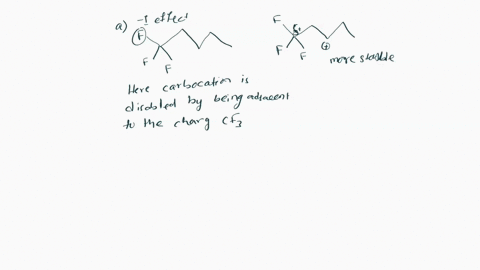 a) -I effect
F
F
F
F
δ+
F
F
+
more stable
Here carbocation is
disabled by being adjacent
to the charg CF3